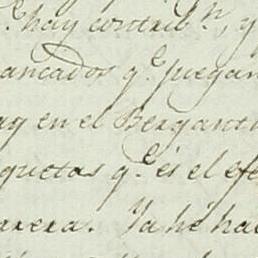 q.e hay contrib.n, y
ancados q.e juegan
ay en el Berganti
quetas q.e es el efe
arera. Ya he ha